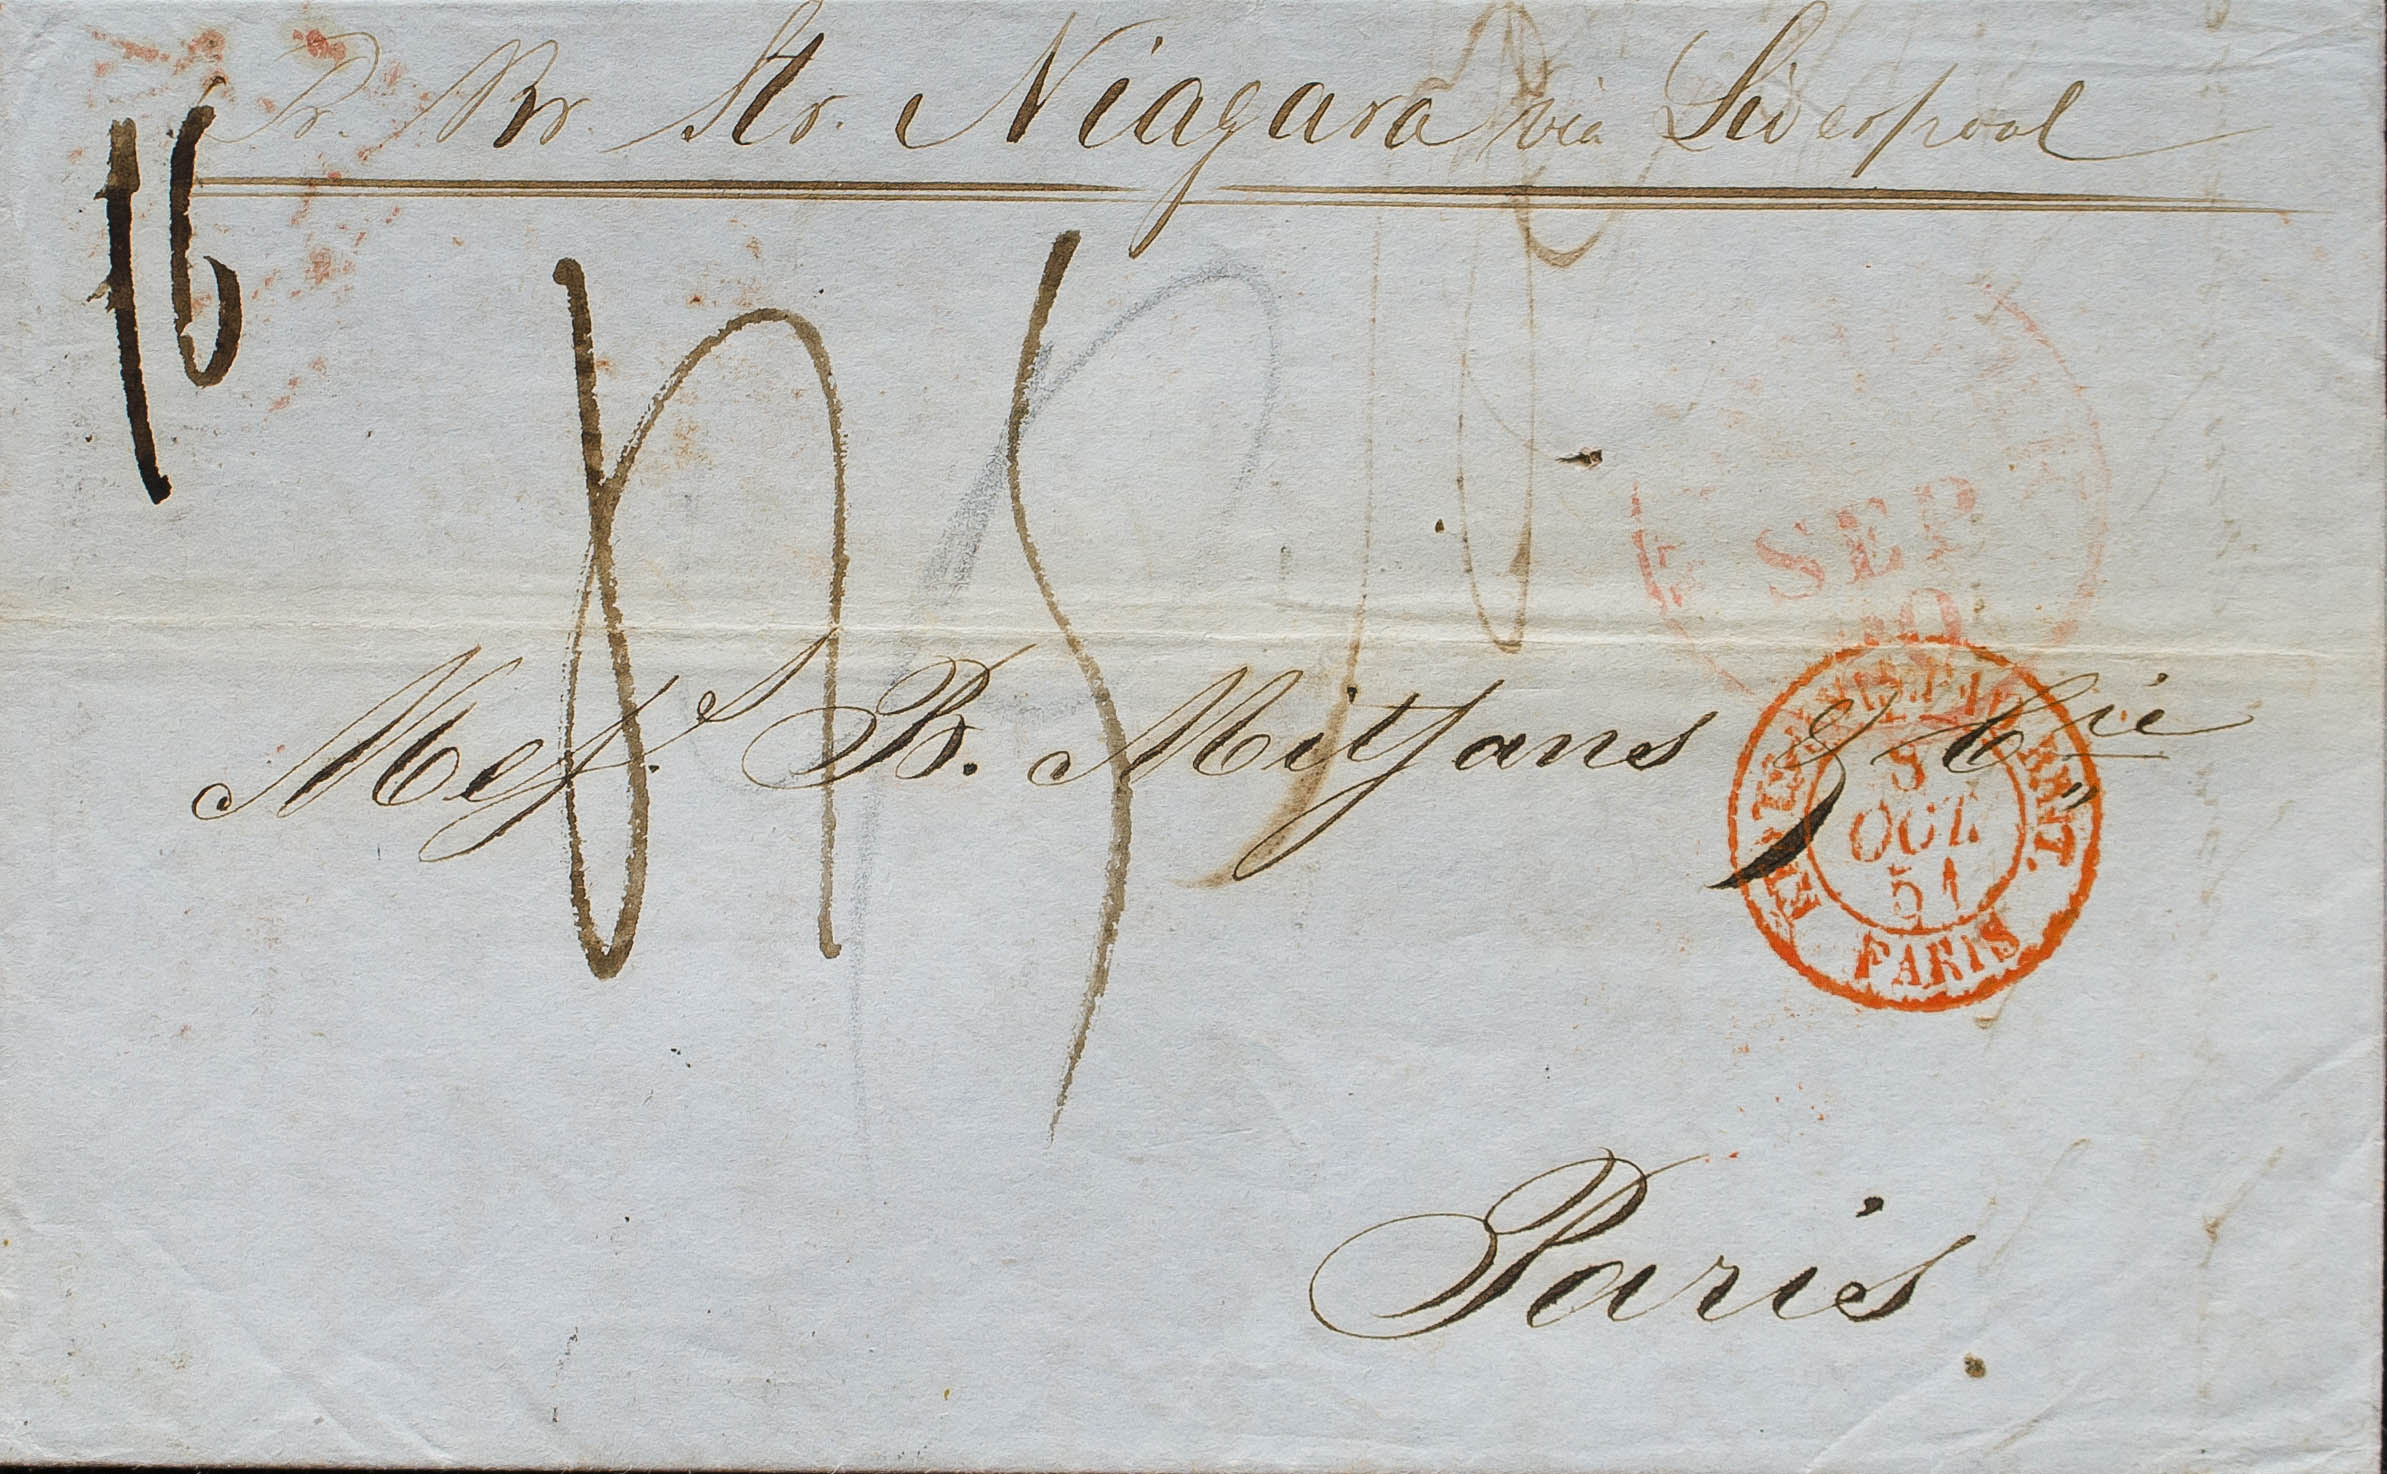 Pr. Br. Str. Niagara via Liverpool
16
15
SEP
Mess.s B. Mitjans & Cie
8
OCT.
51
PARIS
Paris